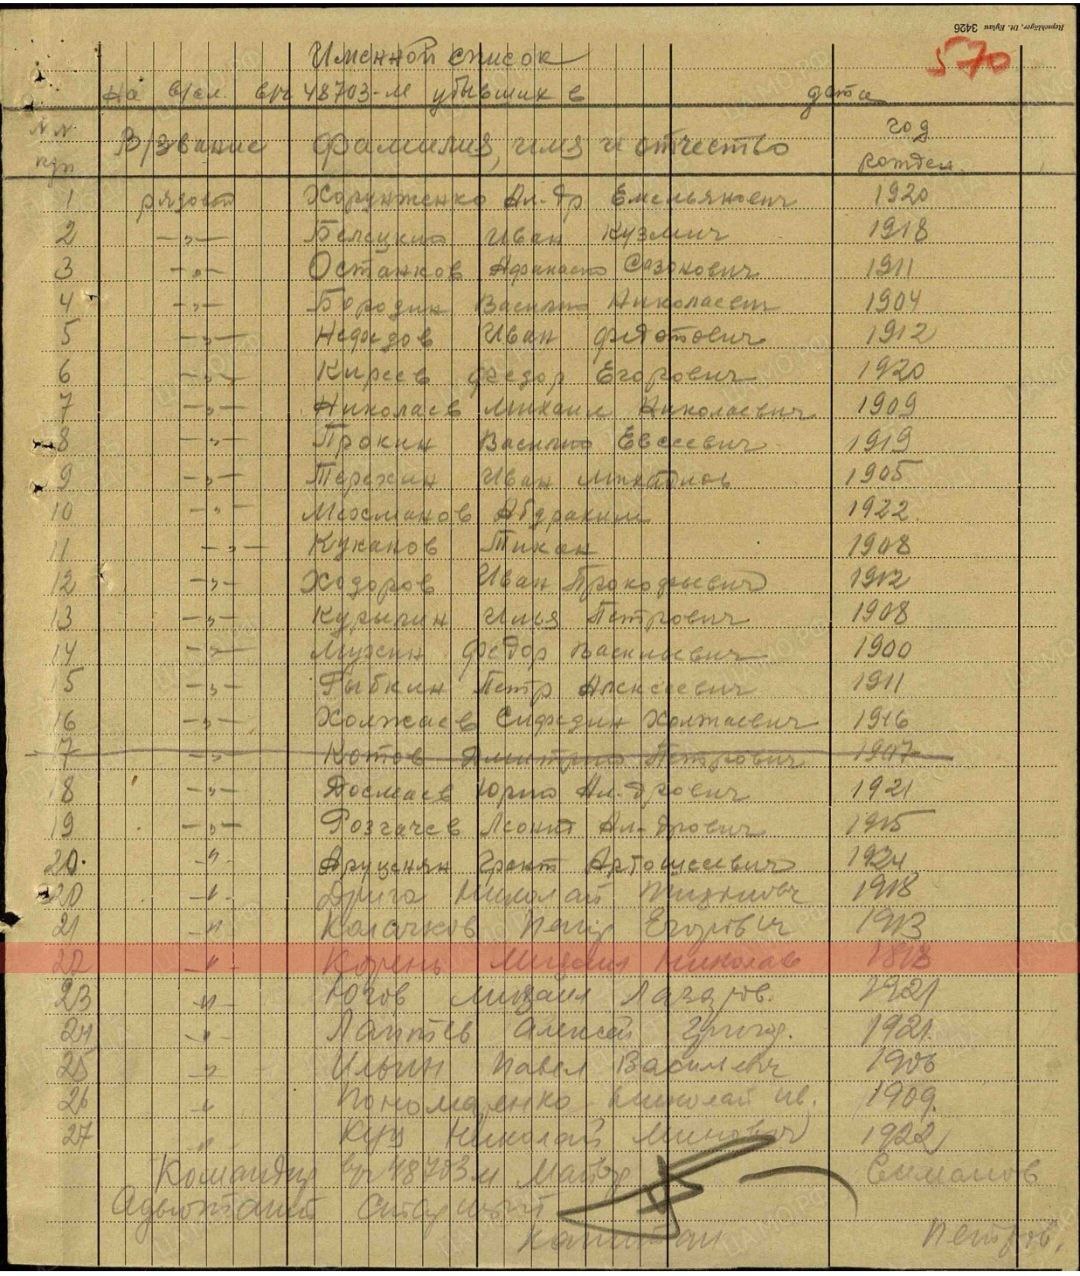 Reprobläger, Dt. Eylau 3426
570
Именной список
на в/сл. в/ч 48703-М убывших в дата
№ №
п/п В/звание Фамилия, имя и отчество год рожден.
1 рядов Хорунженко Ал-др Емельянович 1920
2 -"- Белецкий Иван Кузмич 1918
3 -"- Останков Афанасий Сазонович 1911
4 -"- Бородин Василий Николаевич 1904
5 -"- Нефедов Иван 1912
6 -"- Киреев Федор Егорович 1920
7 -"- Николаев Михаил Николаевич 1909
8 -"- Прокин Василий Евсеевич 1919
9 -"- Терехин Иван 1905
10 -"- Мехманов Абдрахим 1922
11 -"- Куканов 1908
12 -"- Ходоров Иван Прокофьевич 1912
13 -"- Курылин Илья Петрович 1908
14 -"- Мухин Федор Васильевич 1900
15 -"- Рыбкин Петр Алексеевич 1911
16 -"- Холжаев Сифедин Холжаевич 1916
17 -"- Котов Дмитрий Петрович 1907
18 -"- Досмаев Юрий Ал-дрович 1921
19 -"- Розгачев Леонт Ал-дрович 1915
20. -"- Аруценян Грант Арташесович 1924
20 -"- Дрига Николай 1918
21 -"- Калачков Петр Егорович 1913
22 -"- Корень Михаил Николаев 1918
23 -"- Югов Михаил Лазарев. 1921
24 -"- Лаптев Алексей Григор. 1921.
25 -"- Ильин Павел Василевич 1906
26 -"- Пономаренко Николай ив. 1909.
27 -"- Куц Николай Минович 1922
Командир в/ч 48703 м Майор Симанов
Адьютант Старший
капитан Петров.